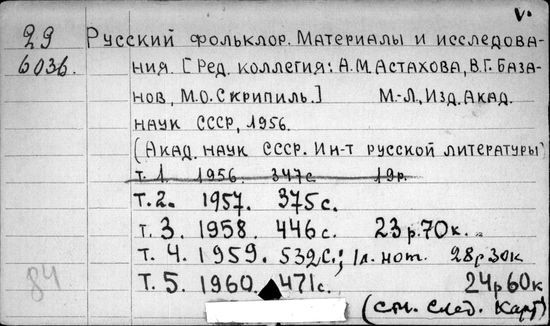 V.
29 Русский фольклор. Материалы и исследова-
6036. ния. [Ред. коллегия: А.М.Астахова, В.Г.База-
нов, М.О.Скрипиль.] М.-Л., Изд. Акад.
наук СССР, 1956.
(Акад. наук СССР. Ин-т русской литературы)
т. 1. 1956. 347с. 19р.
т. 2. 1957. 375с.
т. 3. 1958. 446с. 23р.70к.
т. 4. 1959. 532с.; 1л. нот. 28р30к
84 Т. 5. 1960. 471с. 24р60к
(см. след. карт)